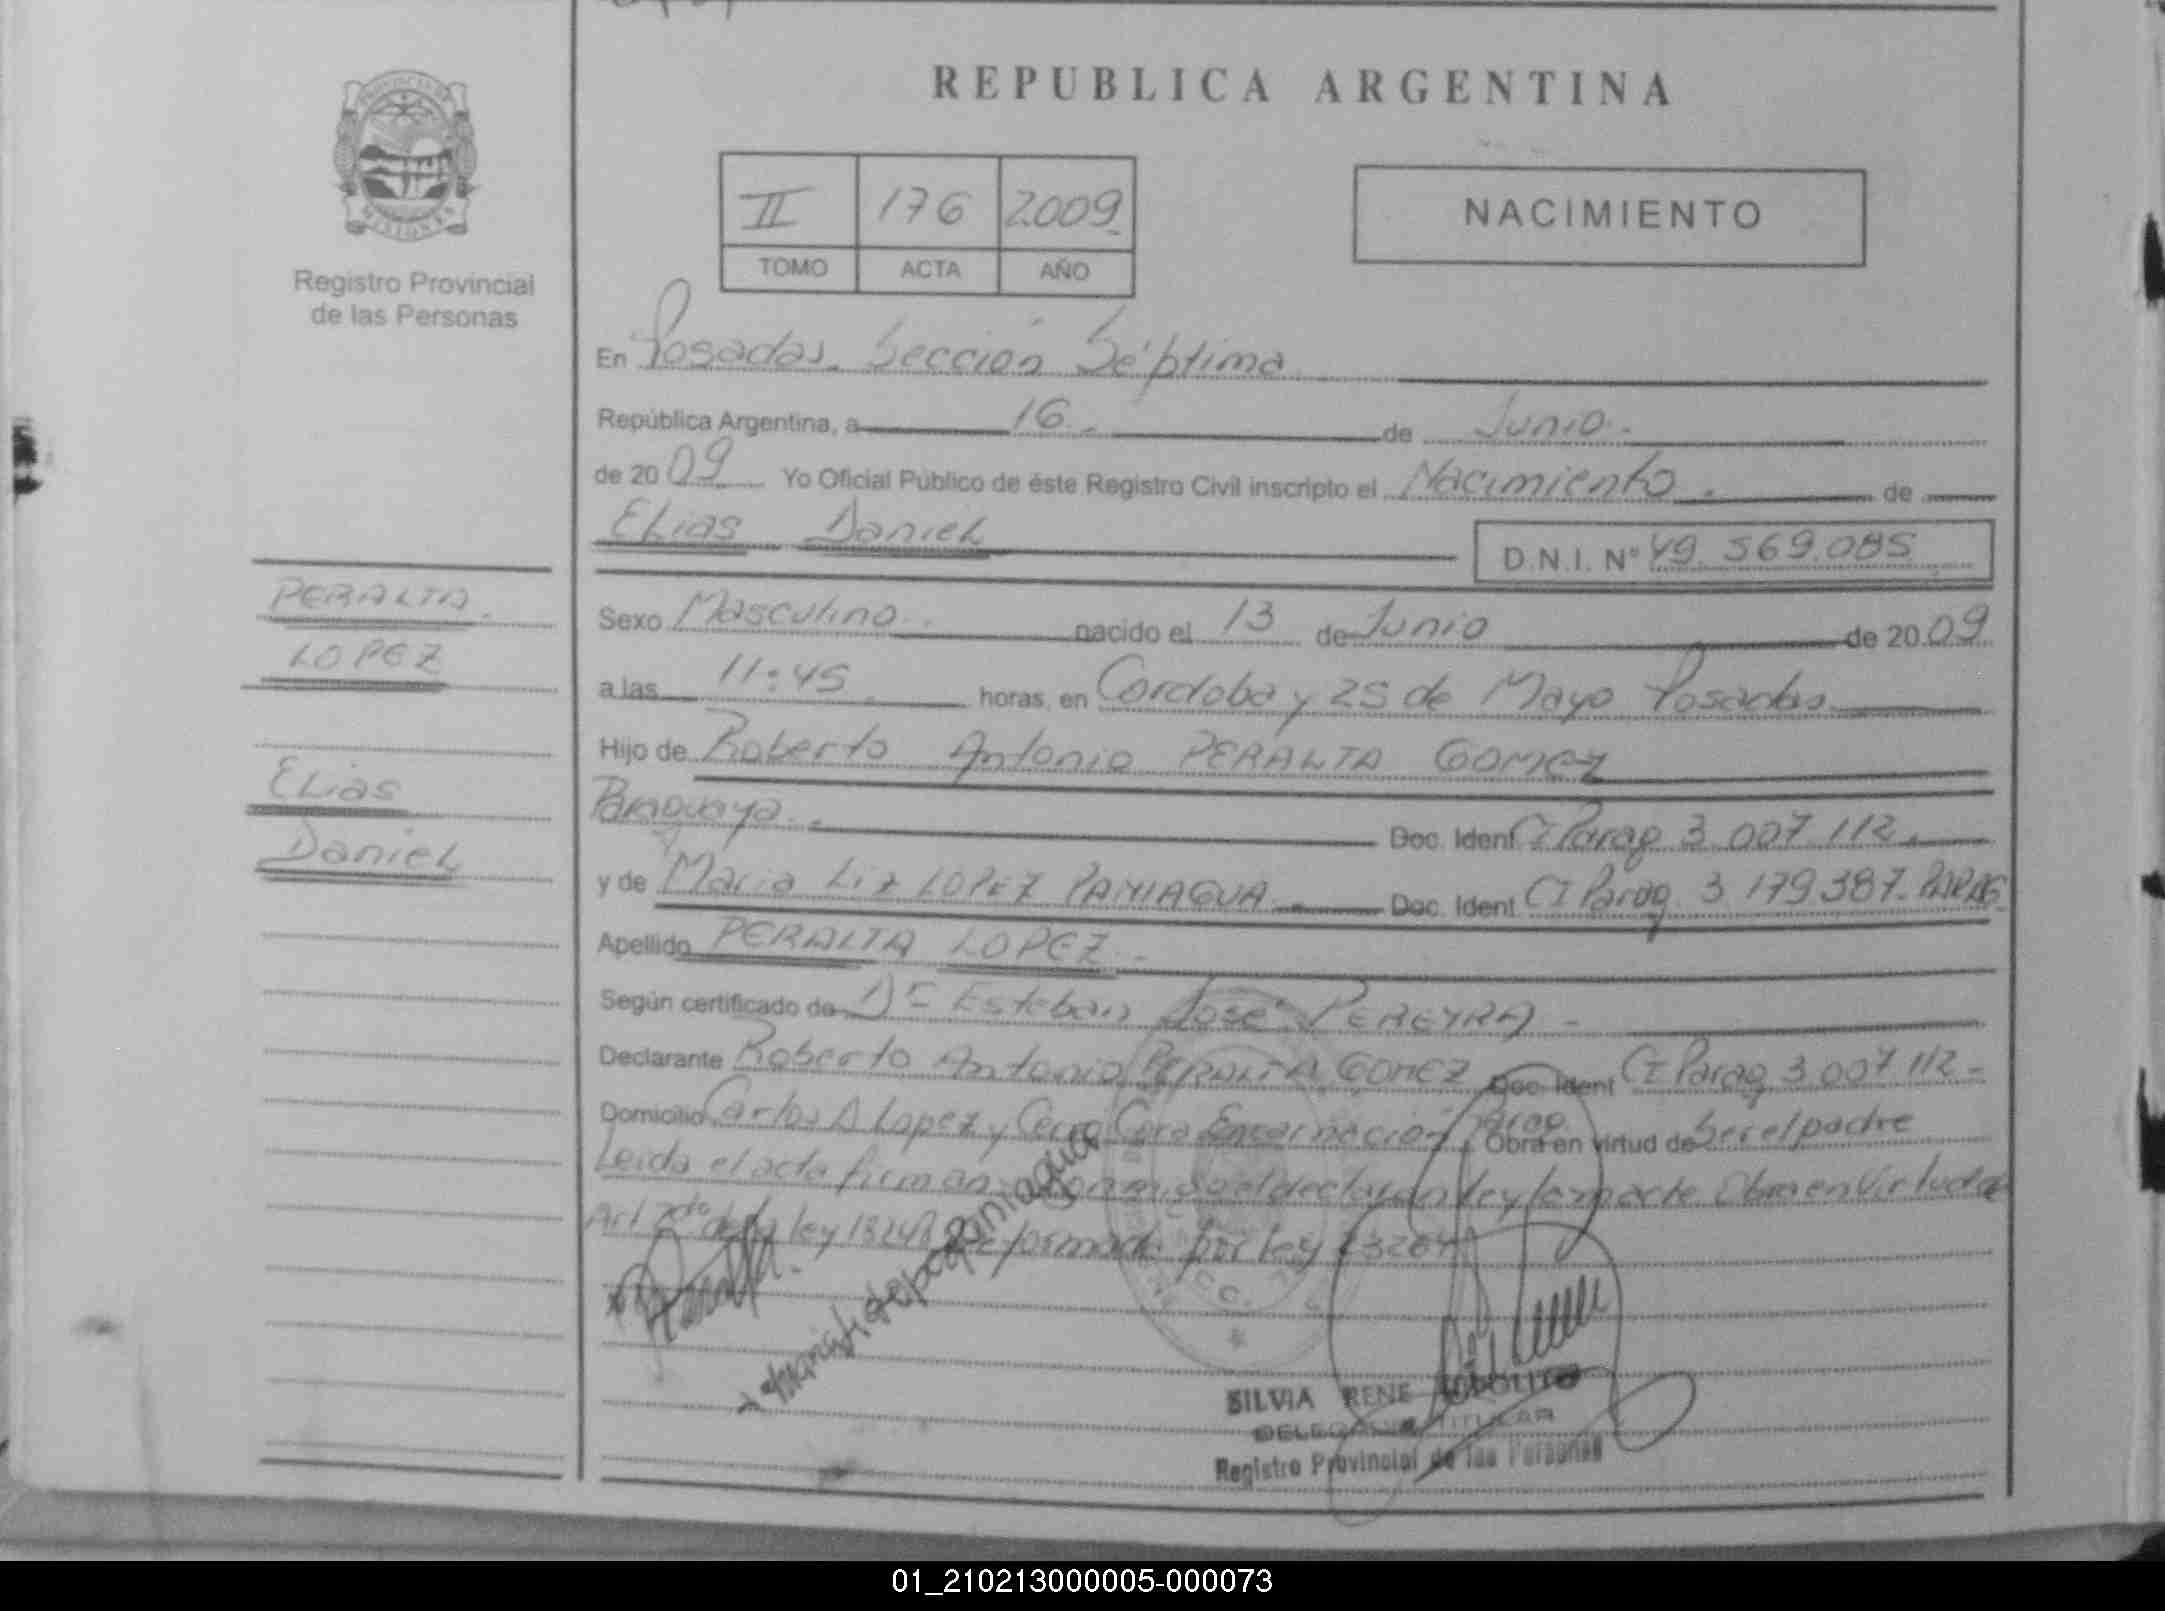 REPUBLICA ARGENTINA
II 176 2009
TOMO ACTA AÑO
NACIMIENTO
Registro Provincial
de las Personas
En Posadas. Sección Séptima
República Argentina, a 16 de Junio
de 2009 Yo Oficial Público de éste Registro Civil inscripto el Nacimiento de
ELias DanieL
D.N.I. N° 49.569.085
PERALTA
LOPEZ
ELias
DanieL
Sexo Masculino nacido el 13 de Junio de 2009
a las 11:45 horas, en Cordoba y 25 de Mayo Posadas
Hijo de Roberto Antonio PERALTA GOMEZ
Paraguaya Doc. Ident CI Parag 3.007.112
y de Maria Liz LOPEZ PANIAGUA Doc. Ident CI Parag. 3.179.387. PARAG
Apellido PERALTA LOPEZ
Según certificado de Dr Esteban José PEREYRA
Declarante Roberto Antonio PERALTA GOMEZ Doc. Ident CI Parag 3.007.112
Domicilio Carlos A Lopez y Cerro Cora Encarnación Obra en virtud de Ser el padre
Leida el acta firman el declarante y Obra en Virtud
Art 2do de la ley reformado por ley
SILVIA RENE
DELEGADA TITULAR
Registro Provincial de las Personas
01_210213000005-000073